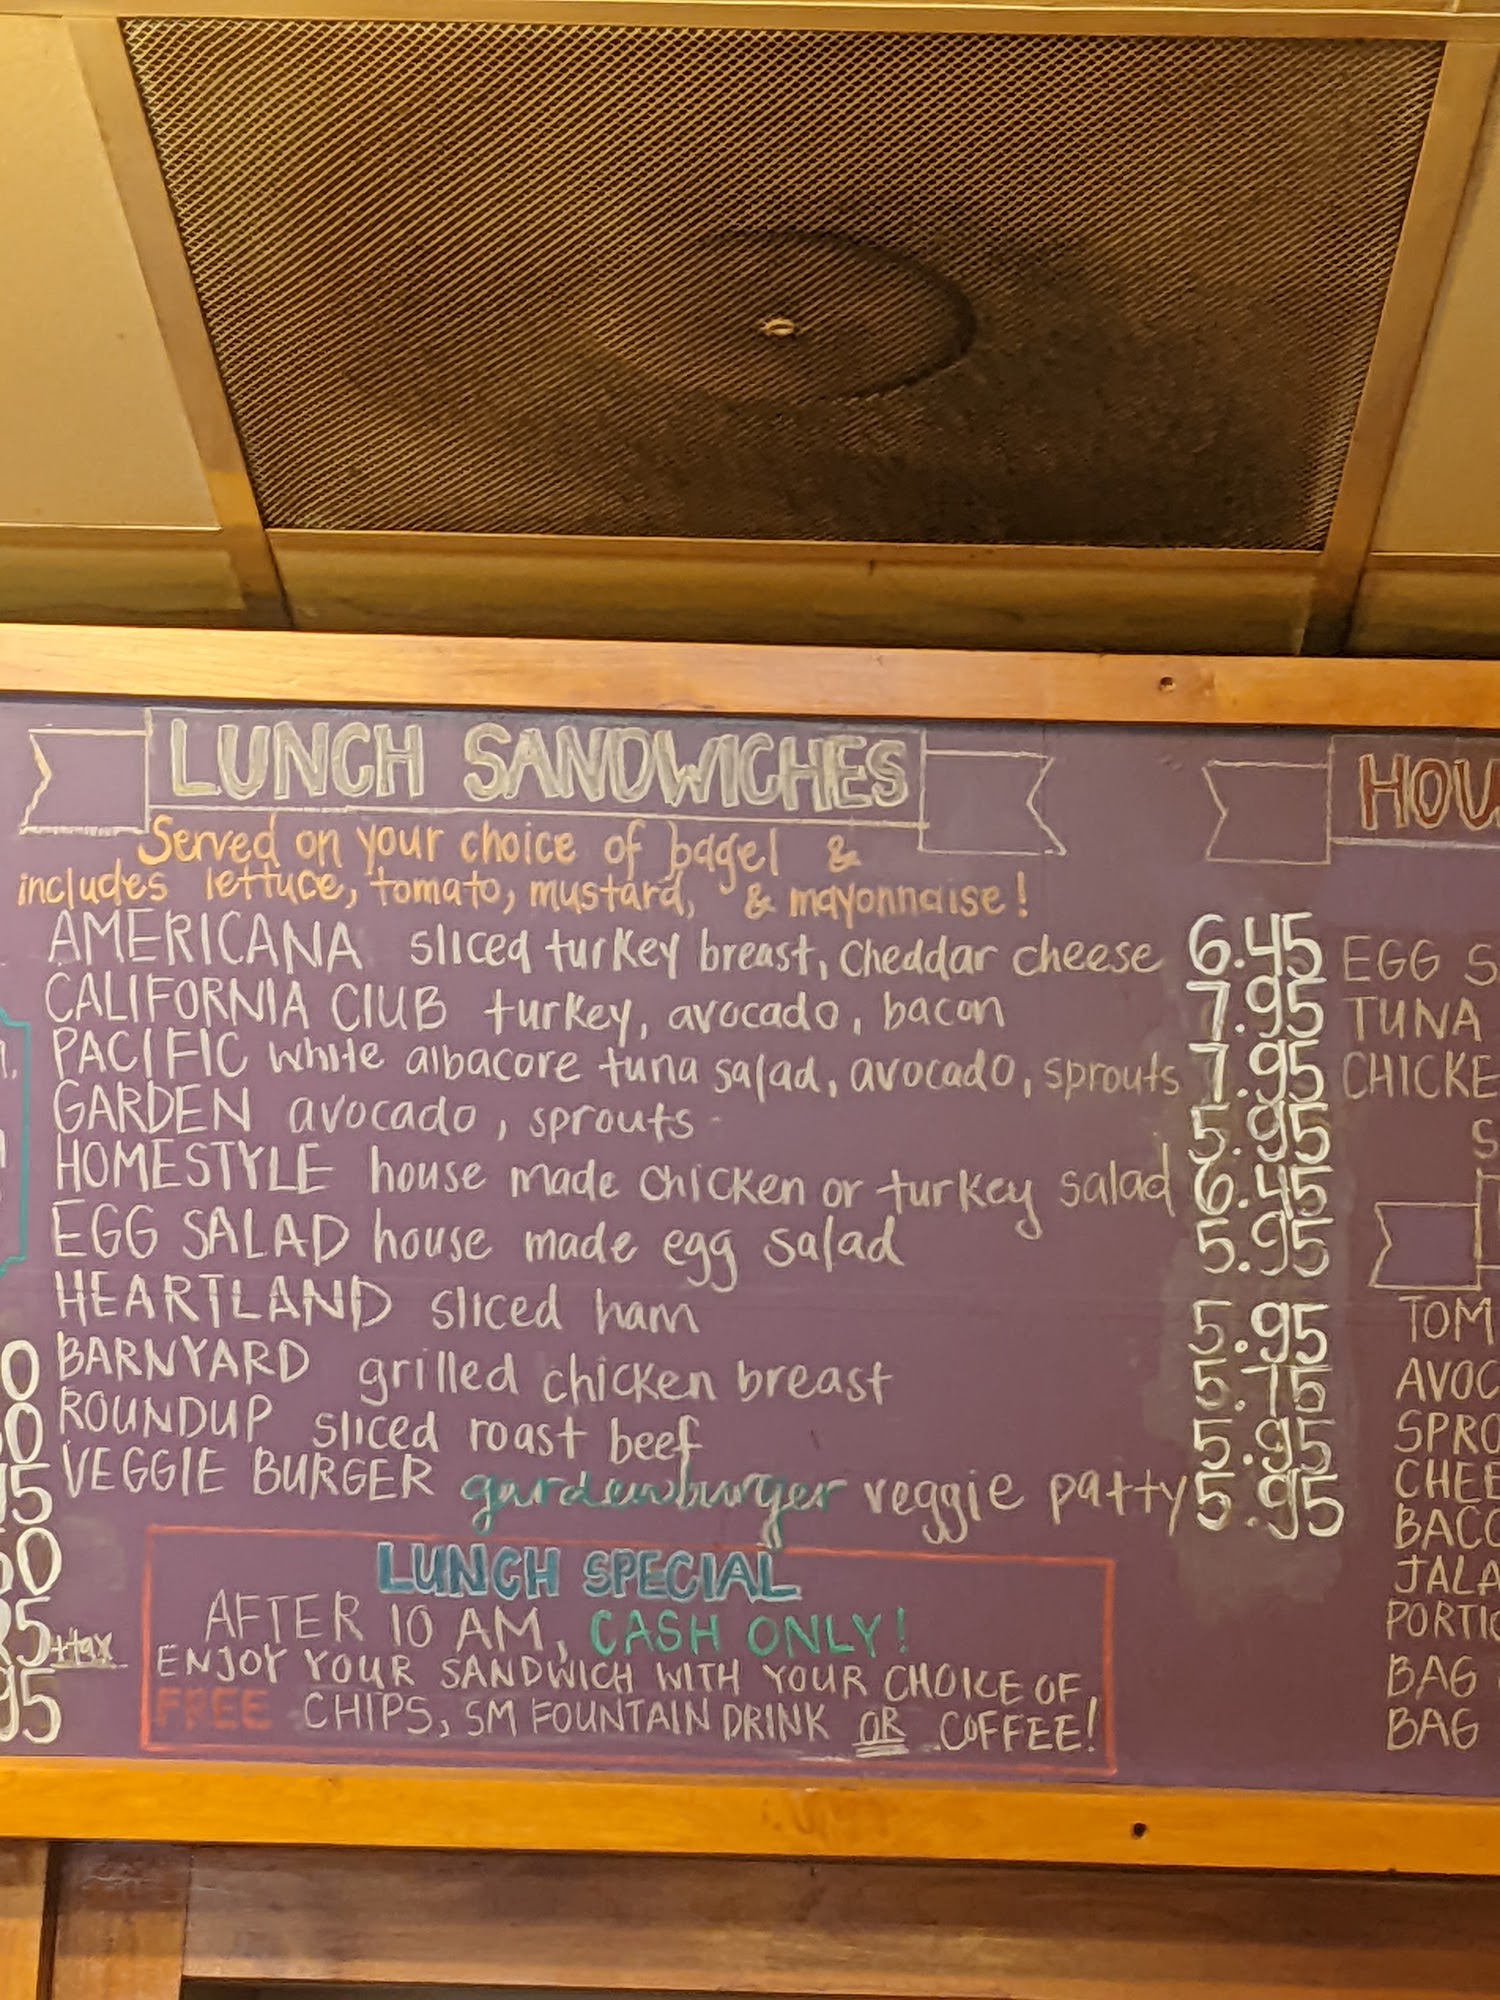 LUNCH SANDWICHES
Served on your choice of bagel &
includes lettuce, tomato, mustard, & mayonnaise!
AMERICANA sliced turkey breast, cheddar cheese 6.45
CALIFORNIA CLUB turkey, avocado, bacon 7.95
PACIFIC white albacore tuna salad, avocado, sprouts 7.95
GARDEN avocado, sprouts 5.95
HOMESTYLE house made chicken or turkey salad 6.45
EGG SALAD house made egg salad 5.95
HEARTLAND sliced ham 5.95
BARNYARD grilled chicken breast 5.75
ROUNDUP sliced roast beef 5.95
VEGGIE BURGER gardenburger veggie patty 5.95
LUNCH SPECIAL
AFTER 10 AM, CASH ONLY!
ENJOY YOUR SANDWICH WITH YOUR CHOICE OF
FREE CHIPS, SM FOUNTAIN DRINK OR COFFEE!
+tax
HOU
EGG S
TUNA
CHICKE
S
TOM
AVOC
SPRO
CHEE
BACO
JALA
PORTIO
BAG
BAG